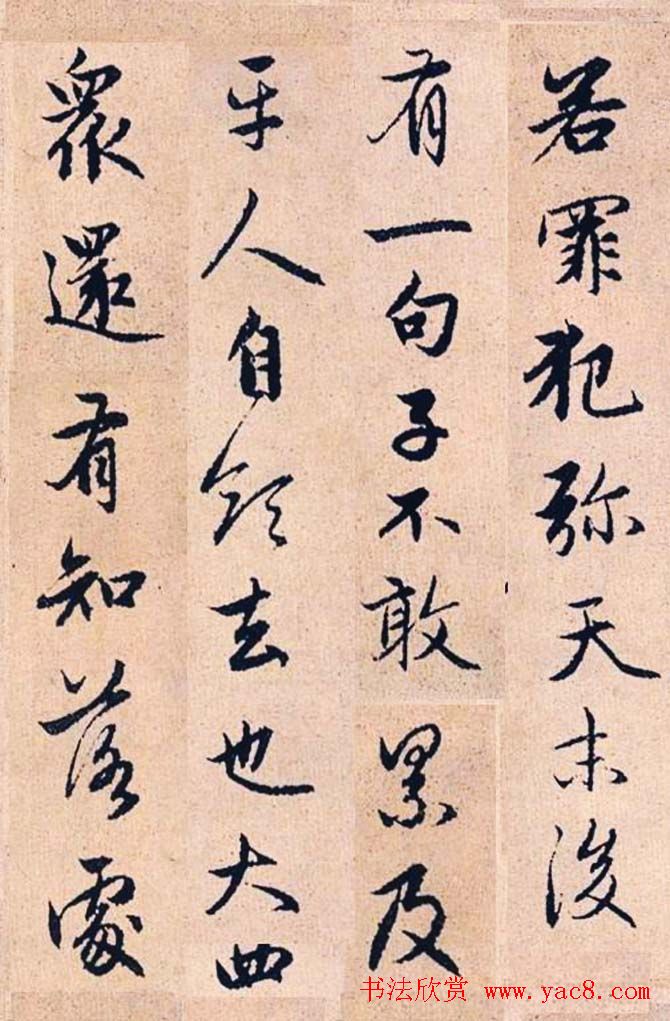 若罪犯弥天末後
有一句子不敢累及
平人自領去也大
衆還有知落處
书法欣赏 www.yac8.com